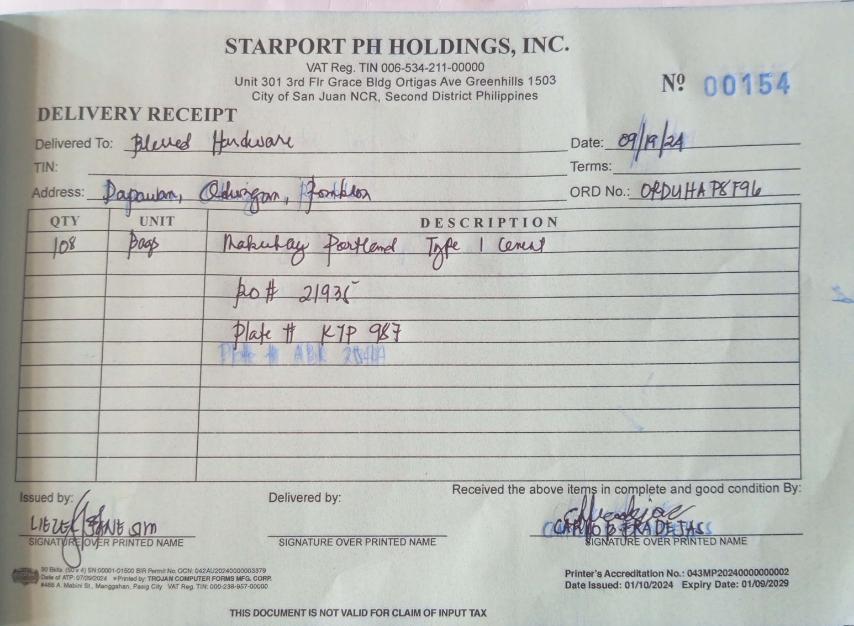 STARPORT PH HOLDINGS, INC.
VAT Reg. TIN 006-534-211-00000
Unit 301 3rd Flr Grace Bldg Ortigas Ave Greenhills 1503
City of San Juan NCR, Second District Philippines
Nº 00154
DELIVERY RECEIPT
Delivered To: Blessed Hardware
Date: 09/19/24
TIN:
Terms:
Address: Odiongan, Romblon
ORD No.: ORDUHAP8F96
QTY UNIT DESCRIPTION
108 bags Portland Type 1 Cement
PO# 21935
Plate # KYP 987
Plate # ABR
Issued by:
Delivered by:
Received the above items in complete and good condition By:
SIGNATURE OVER PRINTED NAME
SIGNATURE OVER PRINTED NAME
SIGNATURE OVER PRINTED NAME
30 Bklts. (50 x 4) SN:00001-01500 BIR Permit No. OCN: 042AU20240000003379
Date of ATP: 07/09/2024 Printed by: TROJAN COMPUTER FORMS MFG. CORP.
#486 A. Mabini St., Manggahan, Pasig City VAT Reg. TIN: 000-238-957-00000
Printer's Accreditation No.: 043MP20240000000002
Date Issued: 01/10/2024 Expiry Date: 01/09/2029
THIS DOCUMENT IS NOT VALID FOR CLAIM OF INPUT TAX